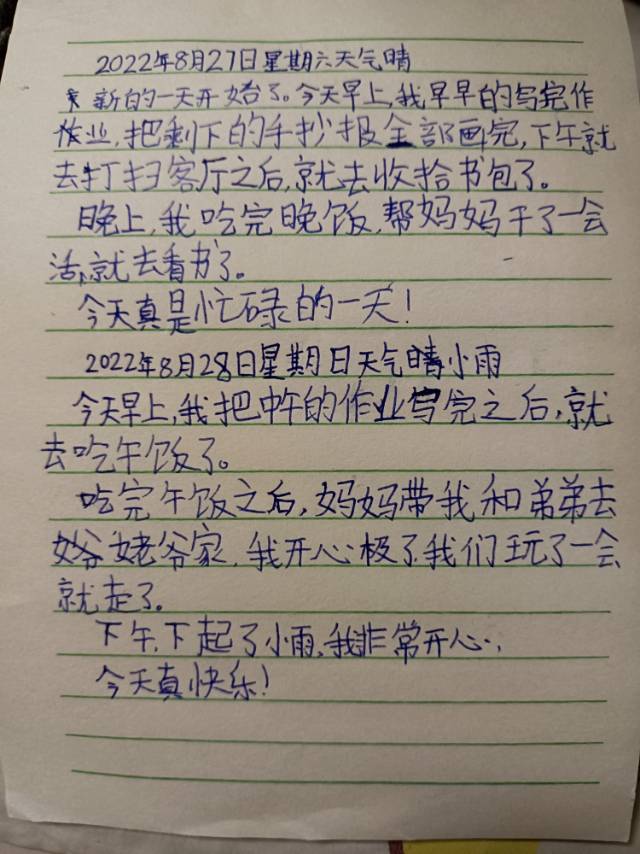 2022年8月27日星期六天气晴
新的一天开始了。今天早上,我早早的写完作
作业,把剩下的手抄报全部画完,下午就
去打扫客厅之后,就去收拾书包了。
晚上,我吃完晚饭,帮妈妈干了一会
活,就去看书了。
今天真是忙碌的一天!
2022年8月28日星期日天气晴小雨
今天早上,我把中午的作业写完之后,就
去吃午饭了。
吃完午饭之后,妈妈带我和弟弟去
姥爷家,我开心极了,我们玩了一会
就走了。
下午,下起了小雨,我非常开心,
今天真快乐!